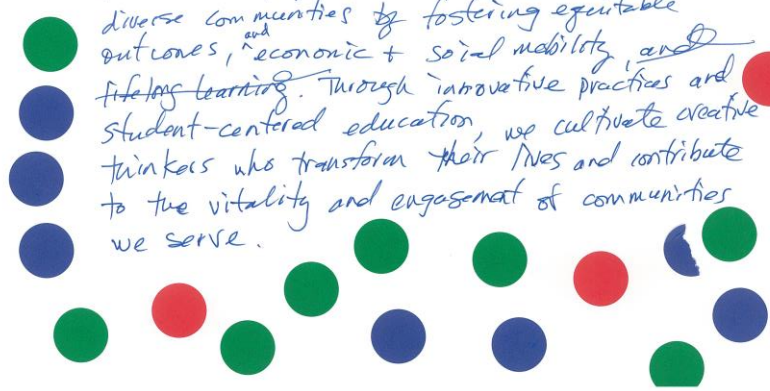 diverse communities by fostering equitable
outcomes, and economic + social mobility, and
lifelong learning. Through innovative practices and
student-centered education, we cultivate creative
thinkers who transform their lives and contribute
to the vitality and engagement of communities
we serve.